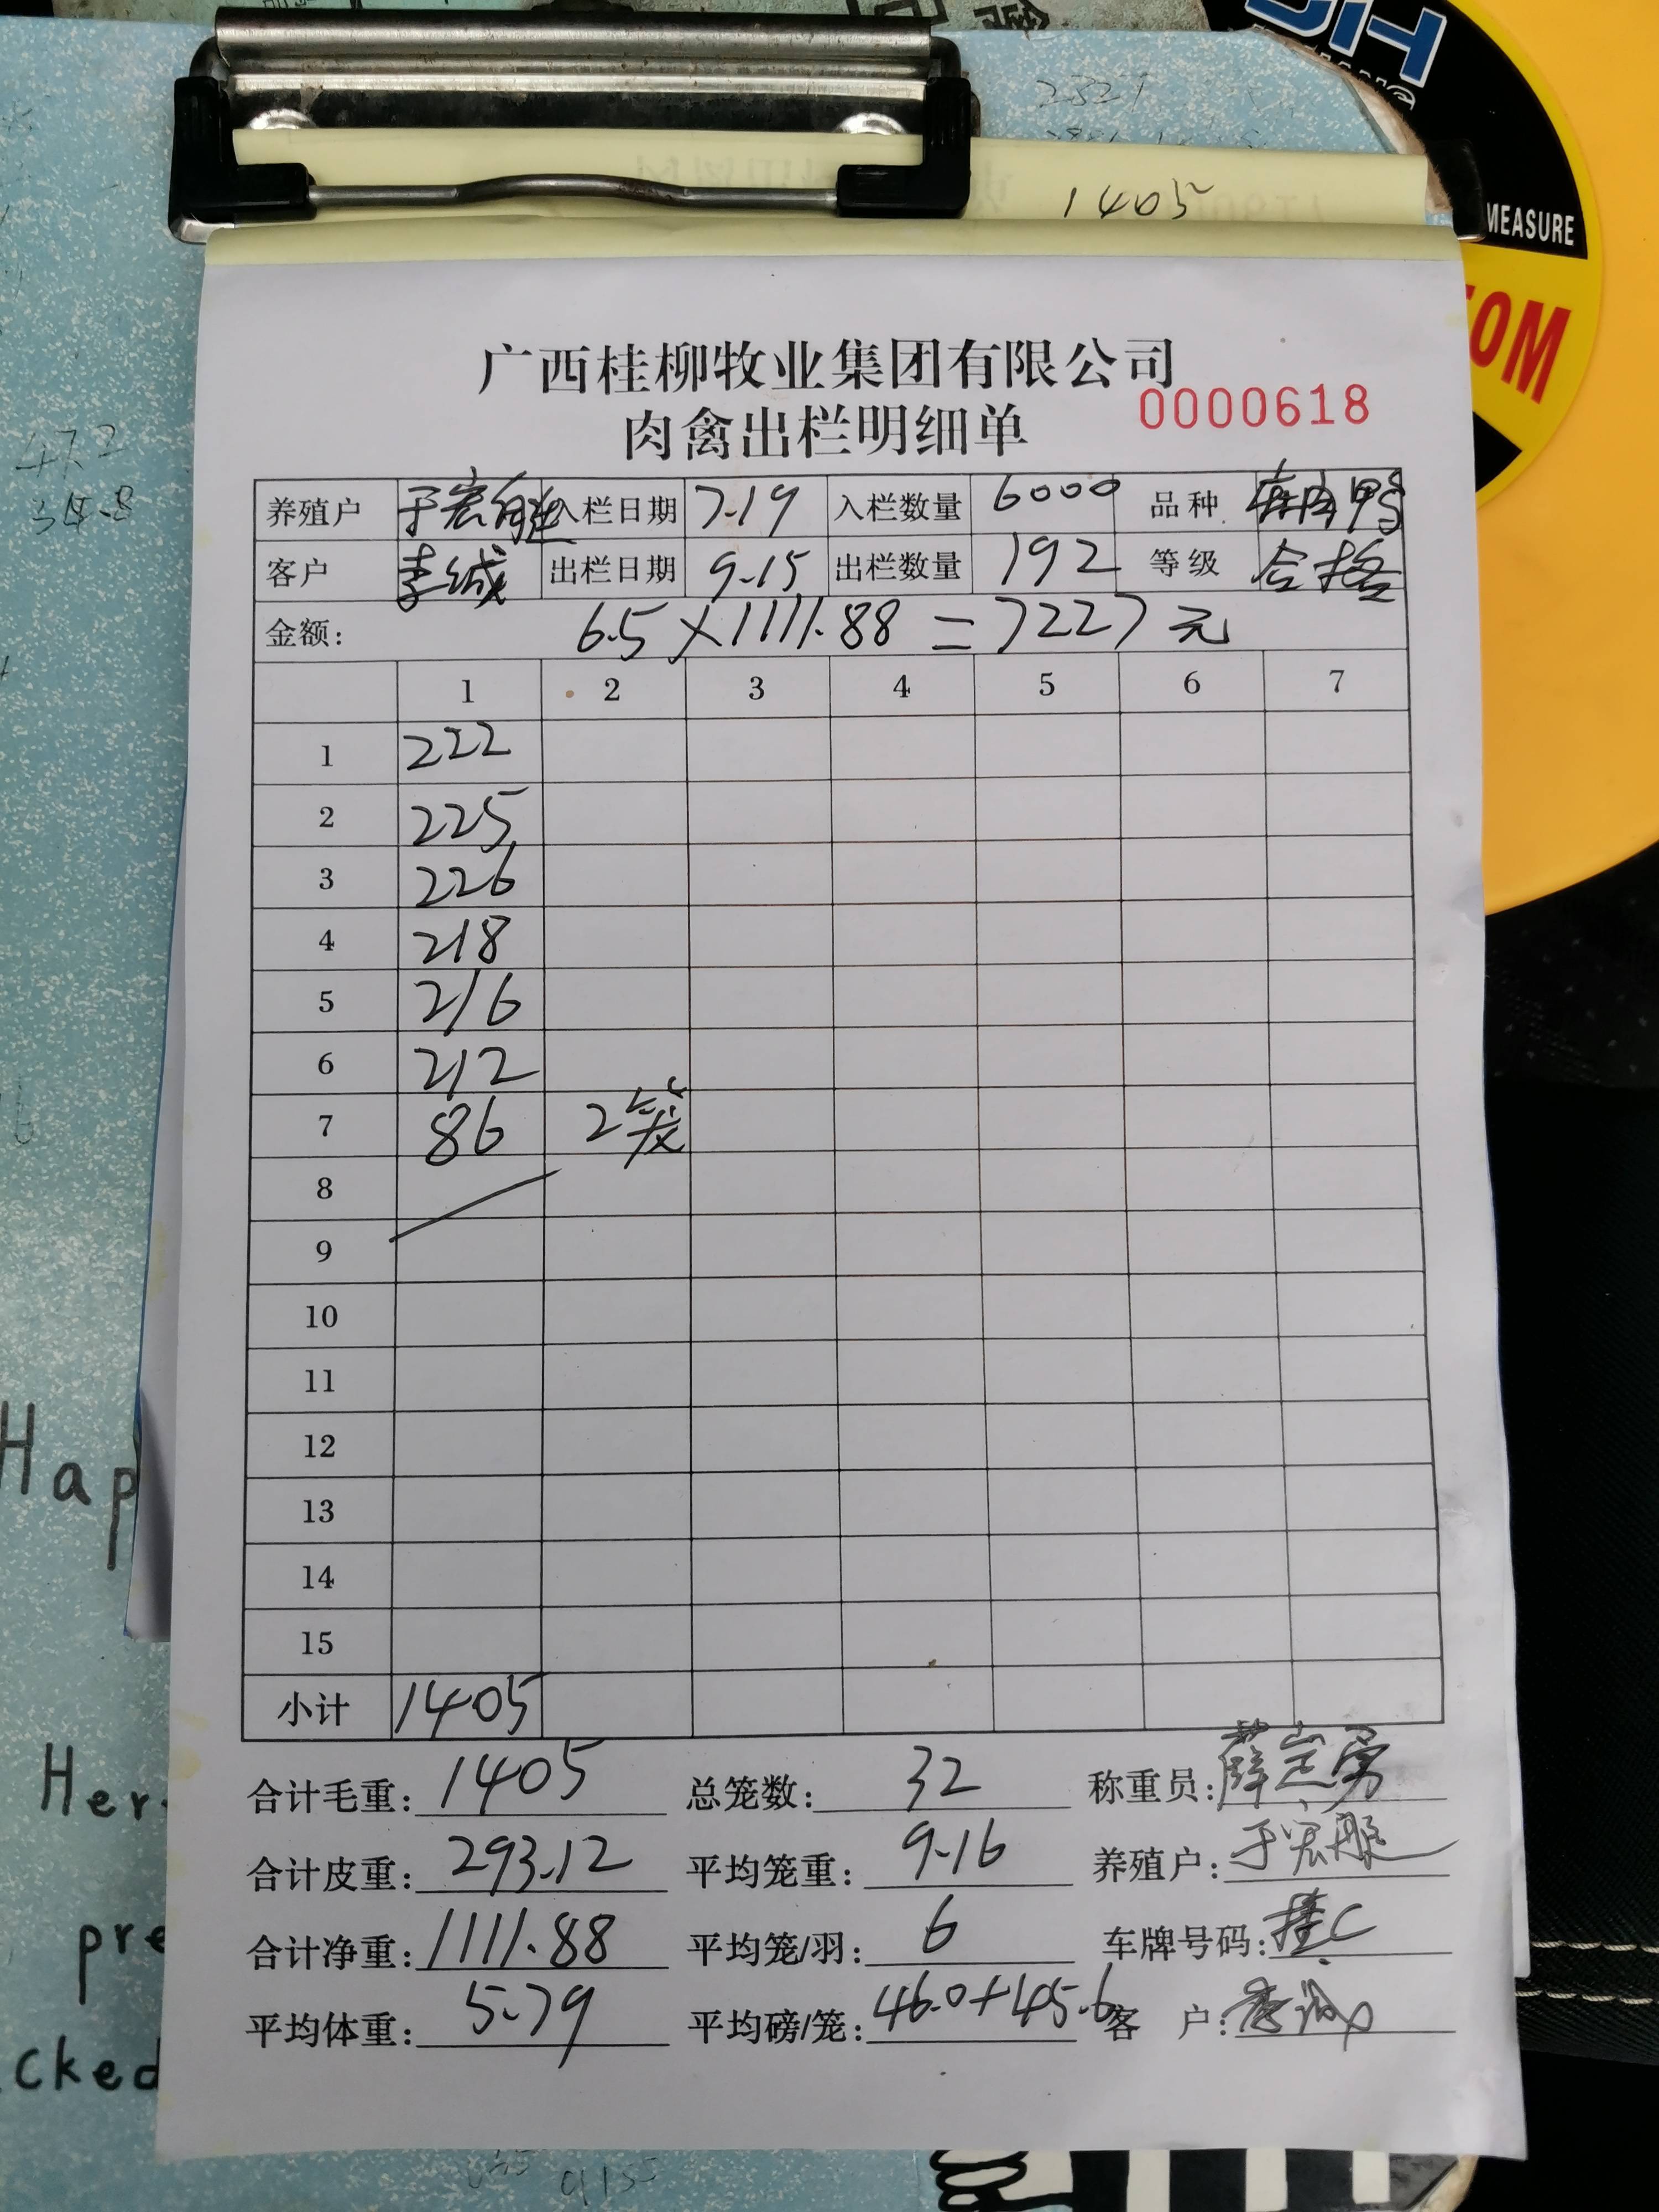 1405
MEASURE
50M
广西桂柳牧业集团有限公司
肉禽出栏明细单 0000618
养殖户 于宏胜 入栏日期 7.19 入栏数量 6000 品种
客户 李诚 出栏日期 9.15 出栏数量 192 等级 合格
金额: 6.5×1111.88=7227元
1 2 3 4 5 6 7
1 222
2 225
3 226
4 218
5 216
6 212
7 86 2笼
8
9
10
11
12
13
14
15
小计 1405
合计毛重: 1405 总笼数: 32 称重员:
合计皮重: 293.12 平均笼重: 9.16 养殖户: 于宏胜
合计净重: 1111.88 平均笼/羽: 6 车牌号码: 桂C
平均体重: 5.79 平均磅/笼: 46.0+45.6 客 户: 李诚
Hap
Her
pre
cked